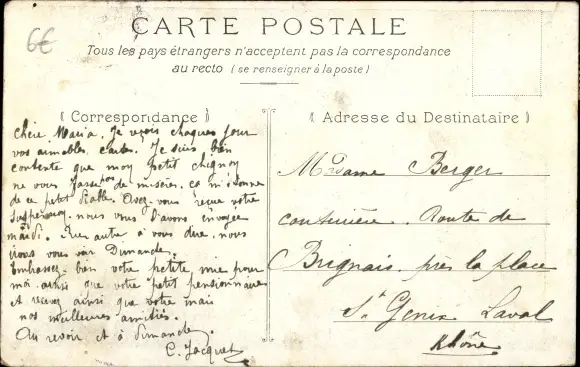 6€
CARTE POSTALE
Tous les pays étrangers n'acceptent pas la correspondance
au recto (se renseigner à la poste)
(Correspondance)
Chère Maria, Je reçois chaques jour
vos aimables cartes. Je suis bien
contente que mon petit chignoy
ne vous fasse pas de misères, ça m'étonne
de ce petit diable. Avez-vous reçue votre
nous vous l'avons envoyée
mardi. Rien autre à vous dire, nous
irons vous voir Dimanche.
Embrassez-bien votre petite mie pour
moi, ainsi que votre petit pensionnaire
et recevez ainsi que votre mari
nos meilleures amitiés.
Au revoir et à dimanche.
C. Jacquet
(Adresse du Destinataire)
Madame Berger
couturière. Route de
Brignais. près la place
St Genis Laval
Rhône